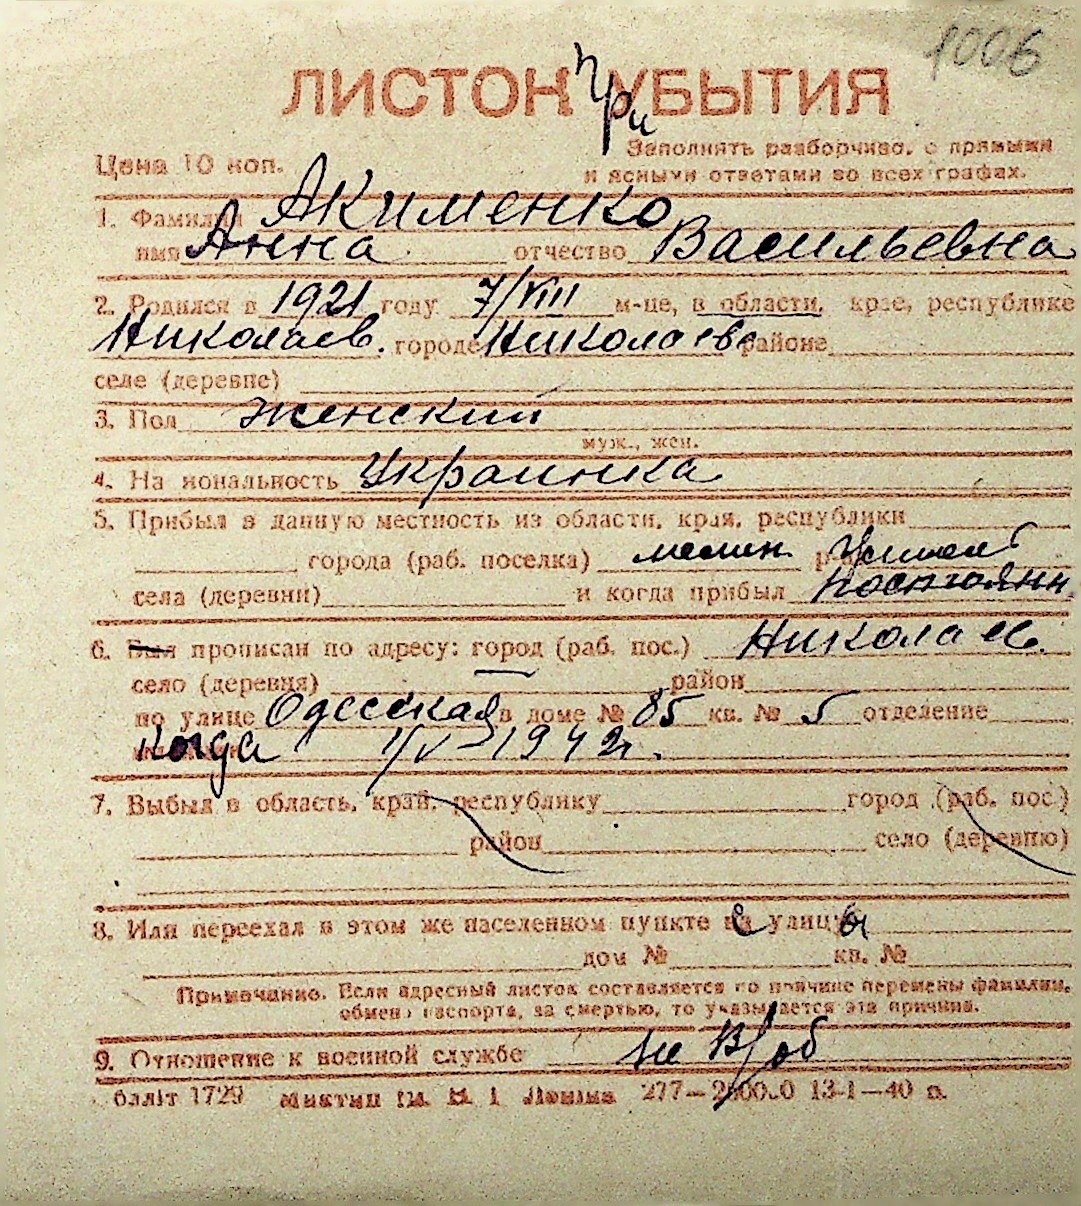 1006
ЛИСТОК при УБЫТИЯ
Цена 10 коп.
Заполнять разборчиво, с прямыми
и ясными ответами во всех графах.
1. Фамилия Акименко
имя Анна отчество Васильевна
2. Родился в 1921 году 7/VIII м-це, в области, крае, республике
Николаев. городе Николаеве районе
селе (деревне)
3. Пол женский
муж., жен.
4. Национальность Украинка
5. Прибыл в данную местность из области, края, республики
города (раб. поселка)
села (деревни) и когда прибыл
6. Был прописан по адресу: город (раб. пос.) Николаев.
село (деревня) район
по улице Одесская в доме № 85 кв. № 5 отделение
Когда 1/V-1942г.
7. Выбыл в область, край, республику город (раб. пос.)
район село (деревню)
8. Или переехал в этом же населенном пункте с улицы
дом № кв. №
Примечание. Если адресный листок составляется по причине перемены фамилии,
обмена паспорта, за смертью, то указывается эта причина.
9. Отношение к военной службе не в/об
1729 277— 13-1—40